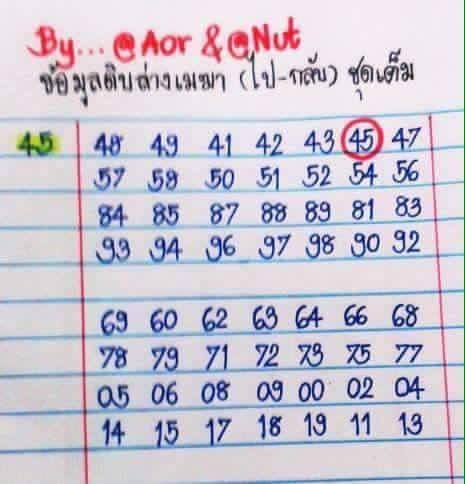 By... @Aor & @Nut
ข้อมูลดิบล่างเมฆา (ไป-กลับ) ชุดเต็ม
45 48 49 41 42 43 45 47
57 58 50 51 52 54 56
84 85 87 88 89 81 83
93 94 96 97 98 90 92
69 60 62 63 64 66 68
78 79 71 72 73 75 77
05 06 08 09 00 02 04
14 15 17 18 19 11 13